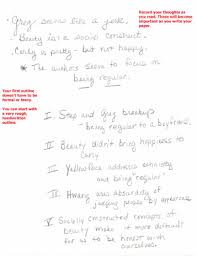 Record your thoughts as
you read. These will become
important as you write your
paper.
• Greg seems like a jerk.
• Beauty is a social construct.
• Carly is pretty - but not happy.
* The authors seem to focus on
being regular.
Your first outline
doesn't have to be
formal or fancy.
You can start with
a very rough,
handwritten
outline.
I. Step and Greg breakup
- being regular to a boyfriend.
II Beauty didn't bring happiness to
Carly
III Yellowface addresses ethnicity
and being "regular"
IV Hwang absurdity of
judging people by appearance
V Socially constructed concepts of
beauty make it more difficult
for us to be honest with
ourselves.